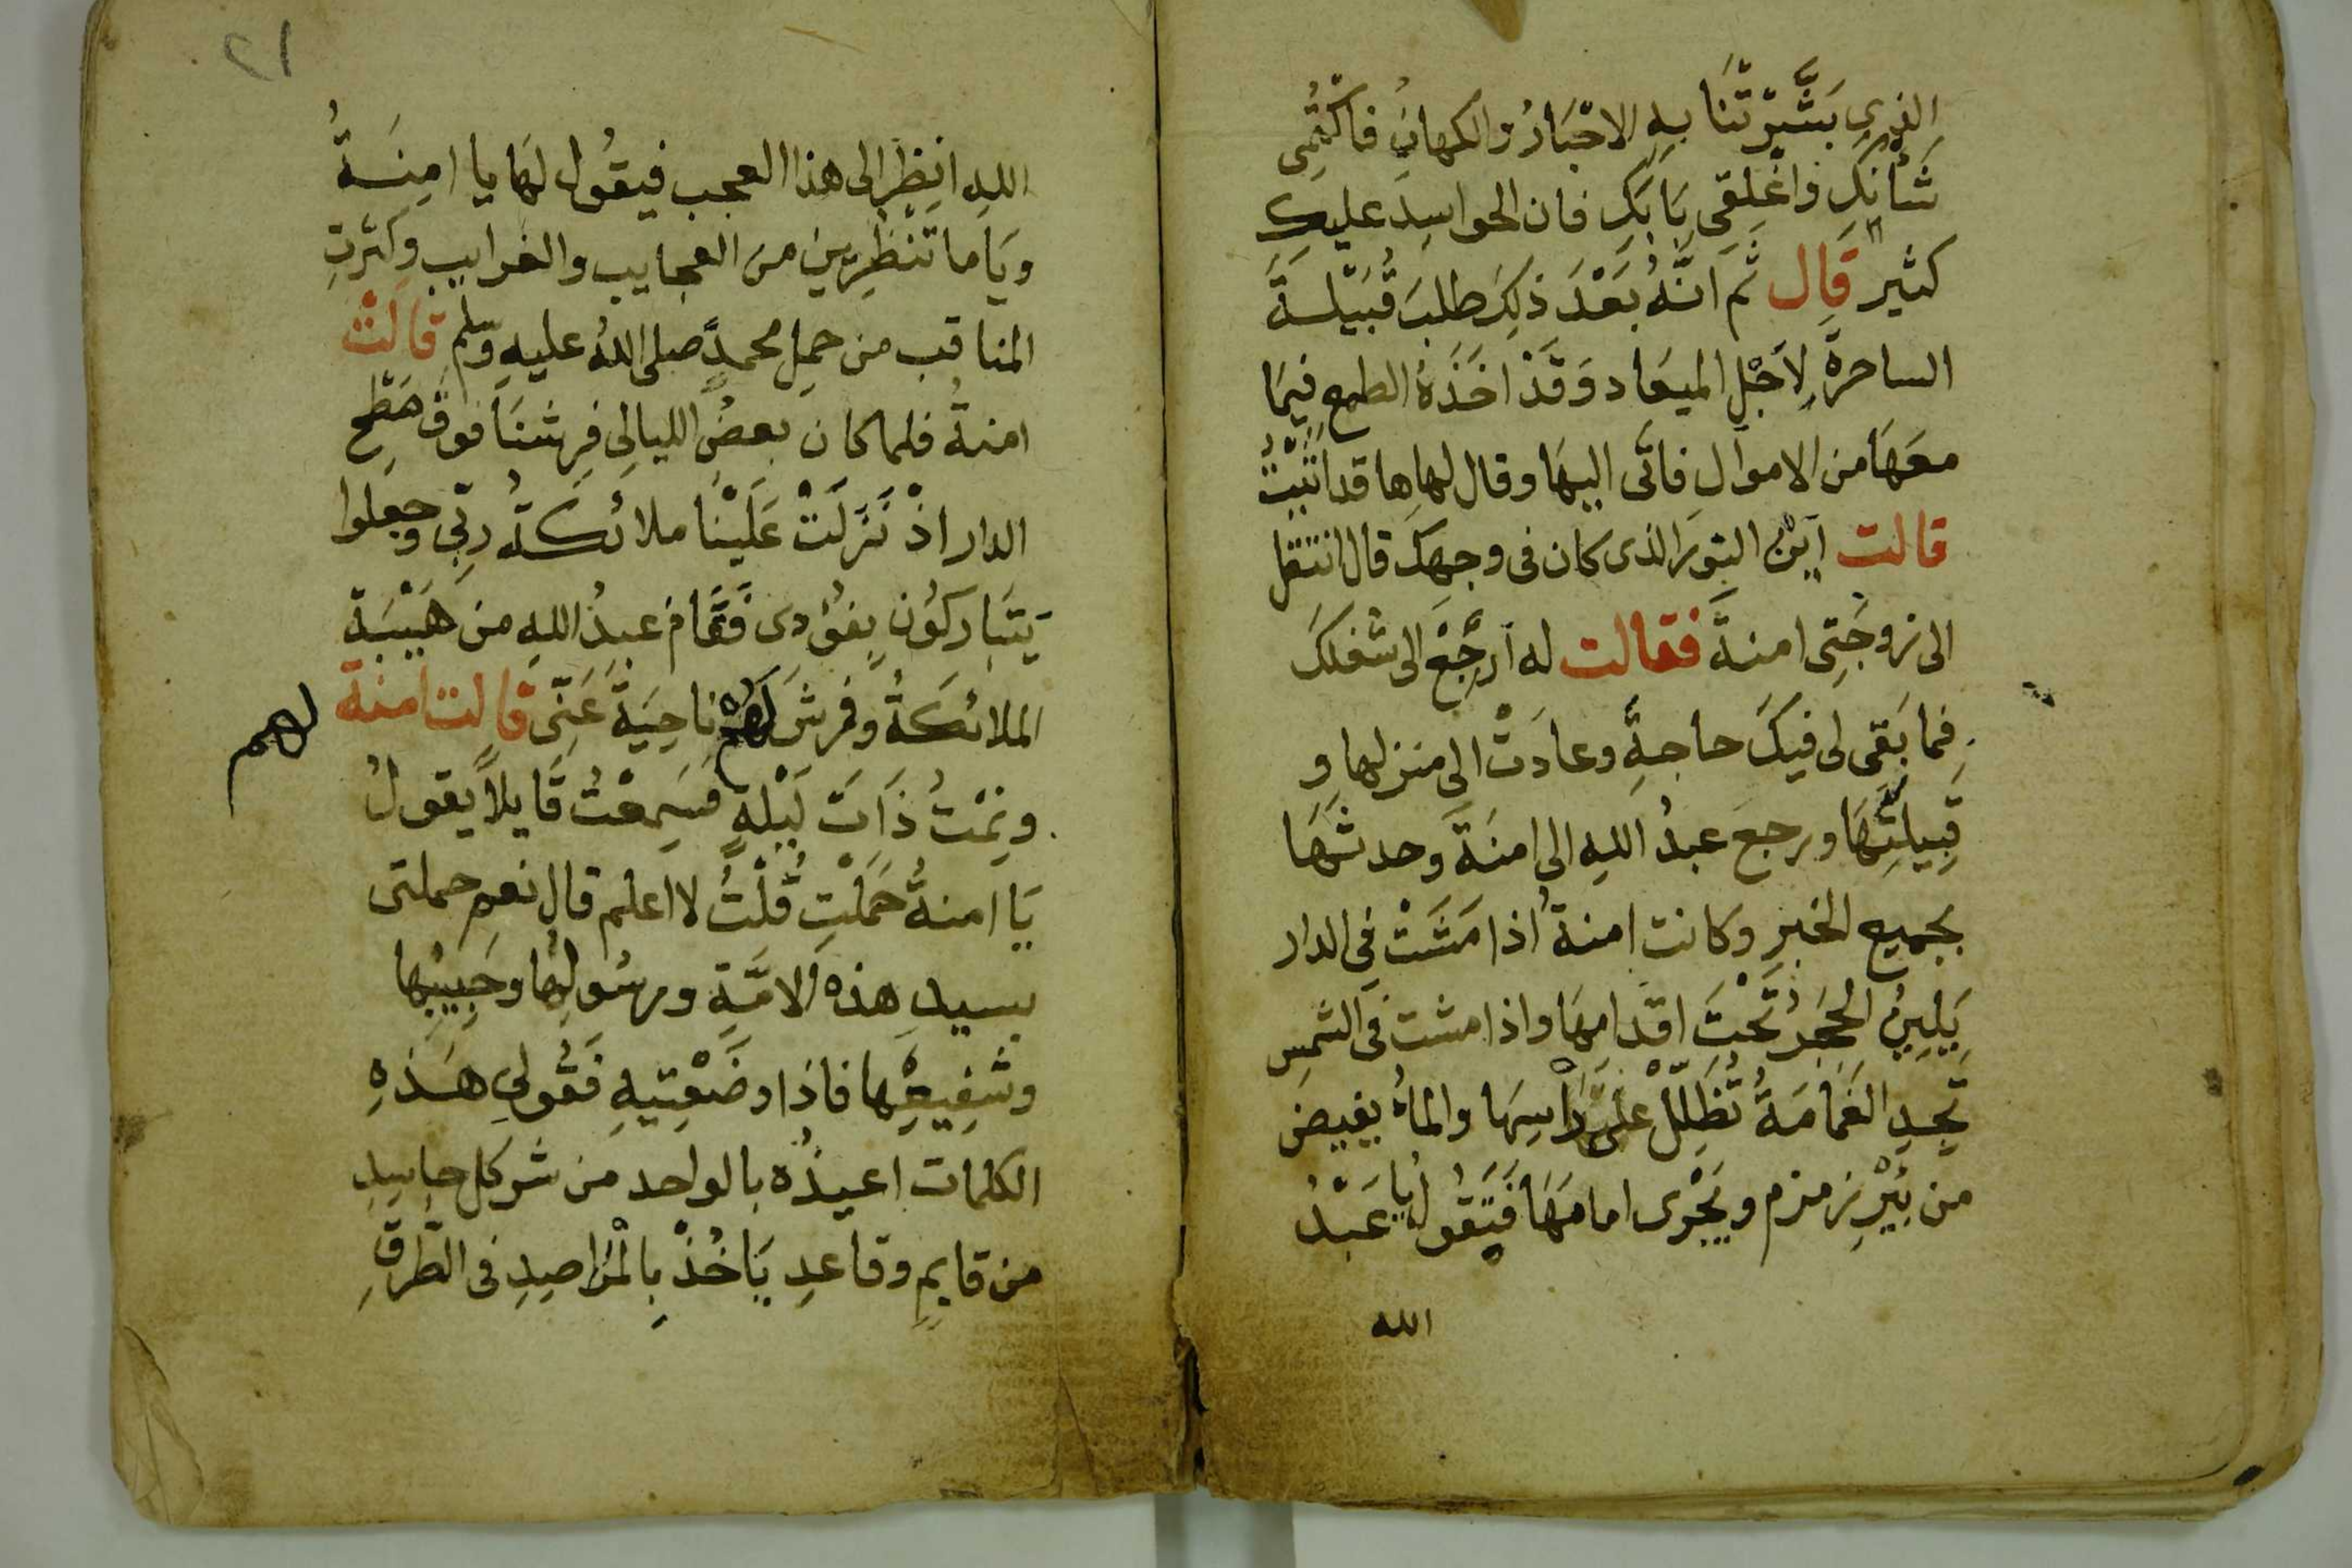 الذِي بَشَّرَتْنَا بِهِ الاحْبَارُ والكهانُ فاكْتُمِى
شَأْنَكِ وَاغْلِقِى بَابَكِ فان الحواسِدَ عليكِ
كثير قَال ثم انَّهُ بَعْدَ ذَلِكَ طلبَ قُبَيْلَةَ
الساحرةَ لِاَجْلِ الميعَاد وَقَدْ اخَذَهُ الطمع فِيمَا
معَهَا من الاموال فاتَى اليهَا وقال لها ها قد اتَيْتُ
قالت اَيْنَ النورَ الذى كان فى وجهِكَ قال انتقل
الى زوجَتِى امنةَ فقالت له اَرْجِعْ الى شغلكَ
فما بَقَى لى فيكَ حاجةٍ وعادَتْ الى منزلها و
قَبِيلَتِهَا ورجعَ عبدُ اللهِ الى امنَةَ وحدثهَا
بجميع الخبرِ وكانت امنةُ اذا مَشَتْ فِي الدار
يَلِينُ الحجَرُ تَحْتَ اقدامِهَا واذا مشت فى الشمسِ
تَجِدِ الغَمَامَةُ تُظَلِّلُ عَلَى رَاْسِهَا والماءُ يفيضَ
من بِيْرِ زمزم ويَجْرى امامَهَا فَتَقُولُ يَا عَبْدُ
الله
٢١
اللهِ انظِر الى هذا العجب فيقُول لهَا يا امِنَةُ
ويَاما تَنْظُرِينَ من العجايب والغرايب وكثرتِ
المناقب من حملِ محمدٍ صلى اللهُ عليهِ وسلم قالَتْ
امنةُ فلما كان بعضُ الليالِى فرشنَا فوقَ سَطْحِ
الدار اذْ نَزَلَتْ عَلَيْنَا ملائكةُ رَبِّى وجعلوا
يَتَبَاركُون بِفؤدى فَقَام عبدُ اللهِ من هَيْبَةِ
الملائكةُ وفرشَ لَهُم نَاحِيَةً عَنِّى قالت امنة
لهم
ونِمْتُ ذَاتَ لَيْلَةٍ فسَمِعْتُ قَايلاً يقولُ
يَا امنةُ حَمَلْتِ قُلْتُ لا اعلم قال نعم حملتى
بسيدِ هذهِ الامَّةِ ورسُولِهَا وحَبِيبِها
وشَفِيعِها فاذَا وضَعْتِيهِ فَقُولِى هَذِهِ
الكلمات اعيذُه بالواحد من شر كل حاسِدِ
من قايمٍ وقاعدِ يَاخُذْ بِالْمَراصِدِ فى الطُّرقِ